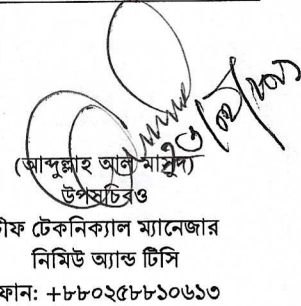 (আব্দুল্লাহ আল মাসুদ)
উপসচিবও
চীফ টেকনিক্যাল ম্যানেজার
নিমিউ অ্যান্ড টিসি
ফোন: +৮৮০২৫৮৮১০৬১৩